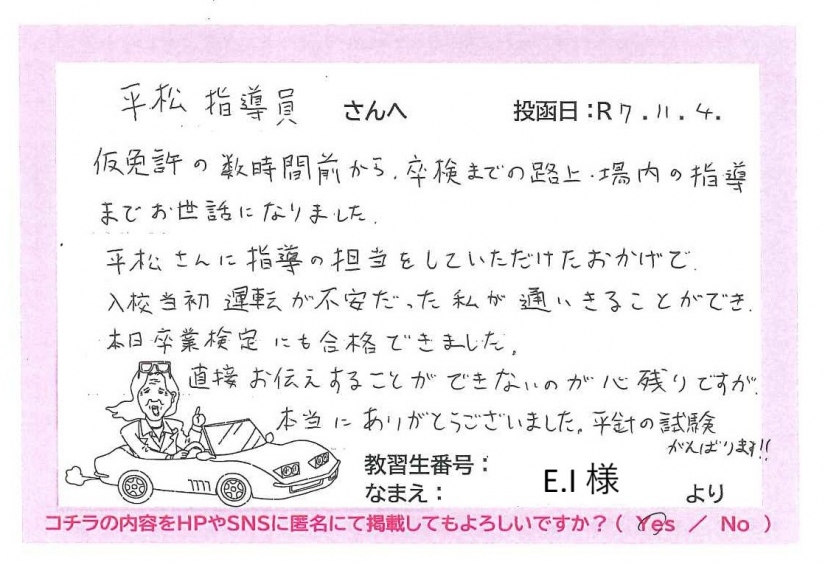 平松 指導員 さんへ 投函日:R7.11.4.
仮免許の数時間前から、卒検までの路上・場内の指導
までお世話になりました。
平松さんに指導の担当をしていただけたおかげで、
入校当初 運転が不安だった私が通いきることができ、
本日卒業検定にも合格できました。
直接お伝えすることができないのが心残りですが、
本当にありがとうございました。平針の試験
がんばります!!
教習生番号:
なまえ: E.I 様 より
コチラの内容をHPやSNSに匿名にて掲載してもよろしいですか?( Yes / No )